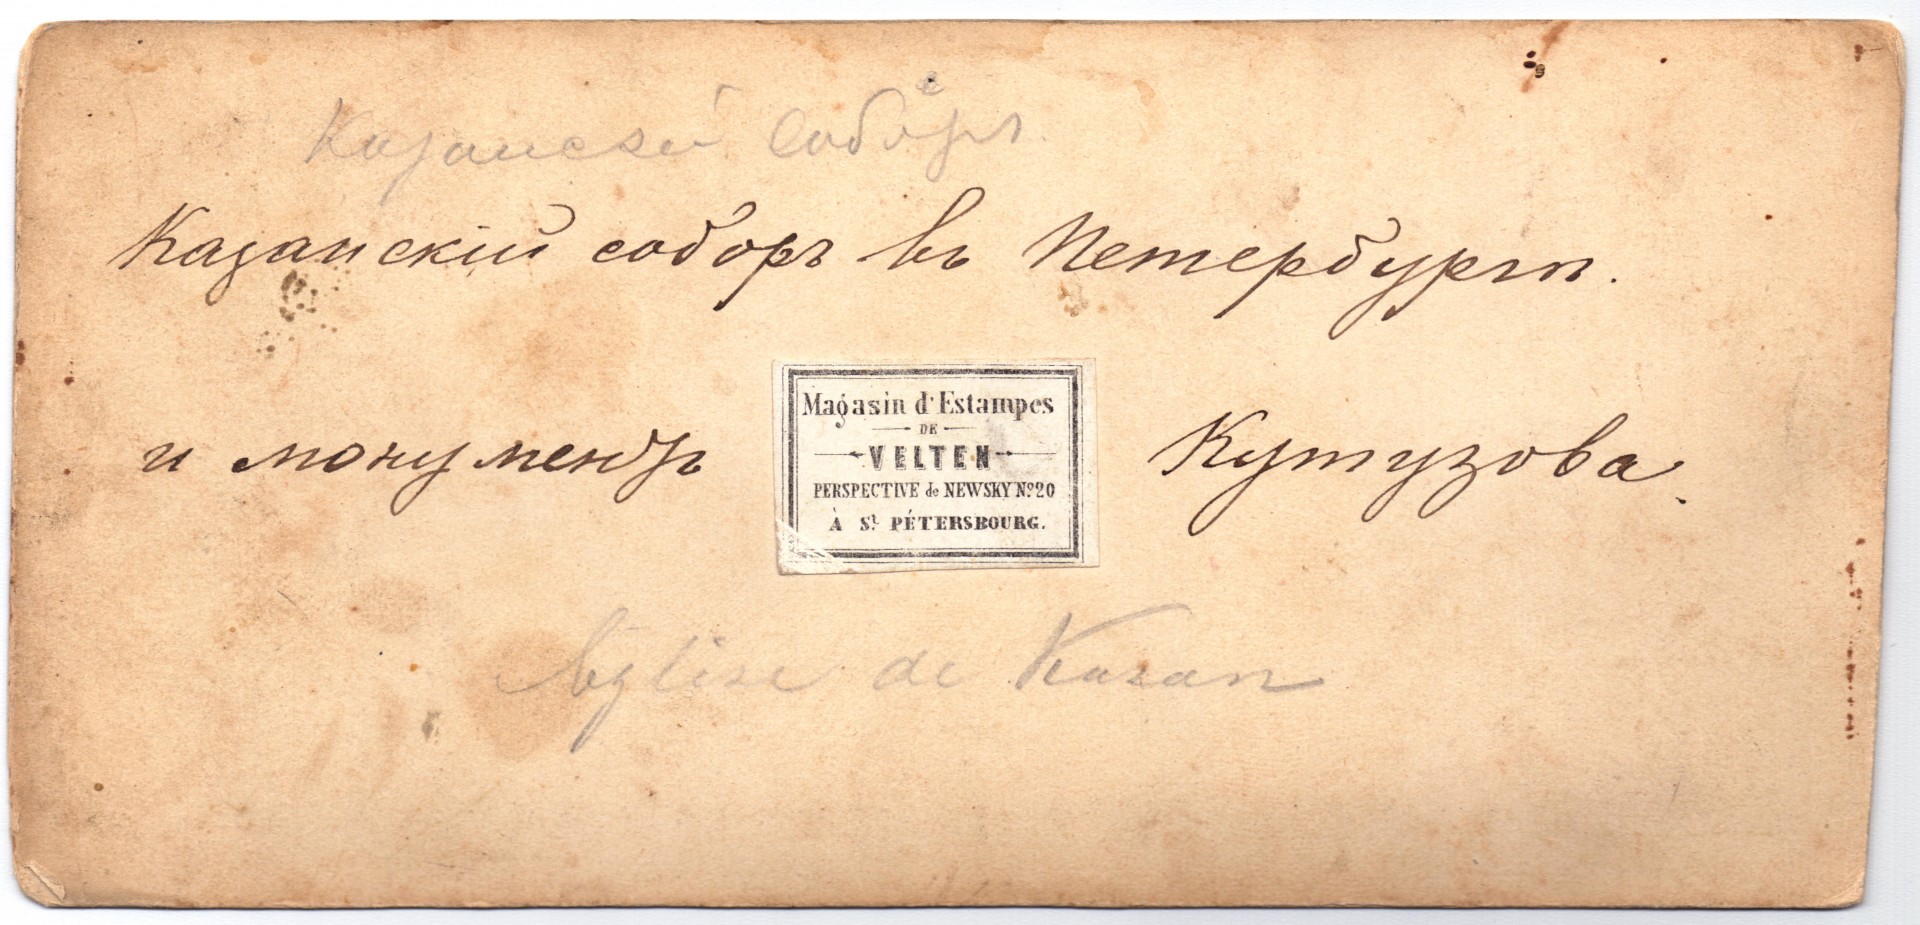 Казанскій Соборъ.
Казанскій соборъ въ Петербургѣ.
и монументъ Кутузова.
Magasin d'Estampes
DE
VELTEN
PERSPECTIVE de NEWSKY Nº20
À St. PÉTERSBOURG.
Église de Kazan